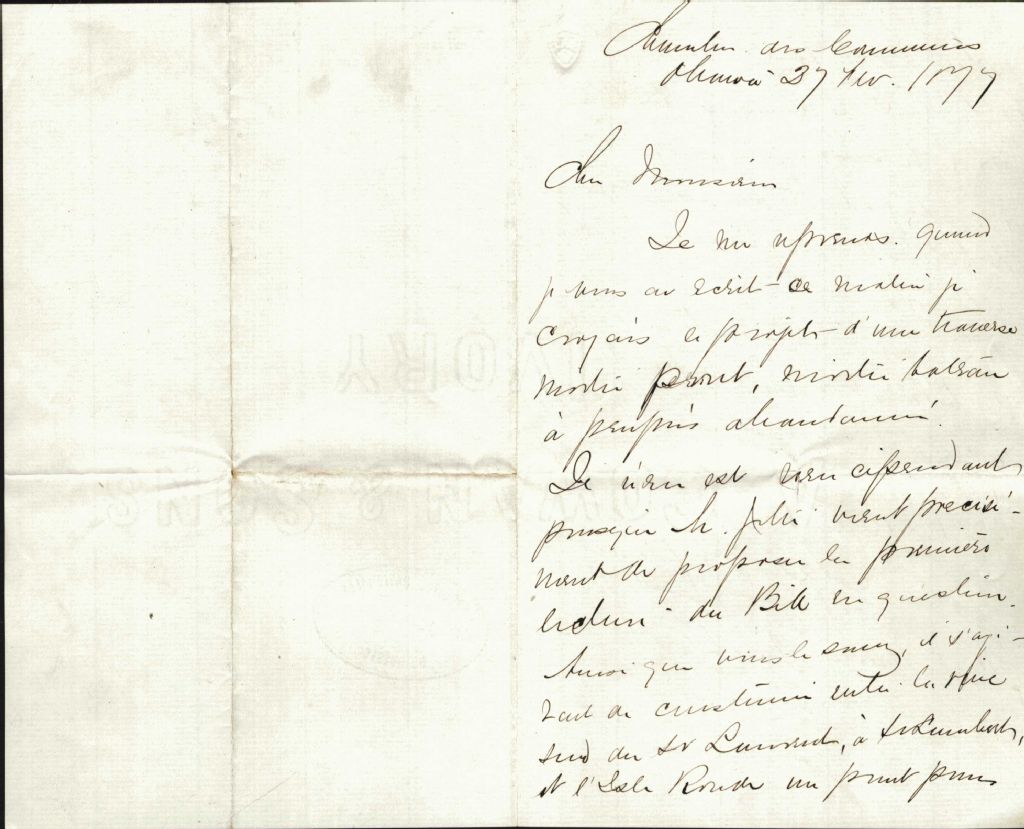 Chambre des Communes
Ottawa 27 Fev. 1877
Cher Monsieur
Je me reprends. quand
je vous ai ecrit ce matin je
croyais le projet d'une traverse
moitié pont, moitié bateau
à peuprès abandonné.
Il n'en est rien cependant
puisque M. vient precisé-
ment de proposer la première
lecture du Bill en question.
Ainsi que vous le savez, il s'agi-
rait de construire entre la rive
sud du St Laurent, à St Lambert,
et l'Isle Ronde un pont pour